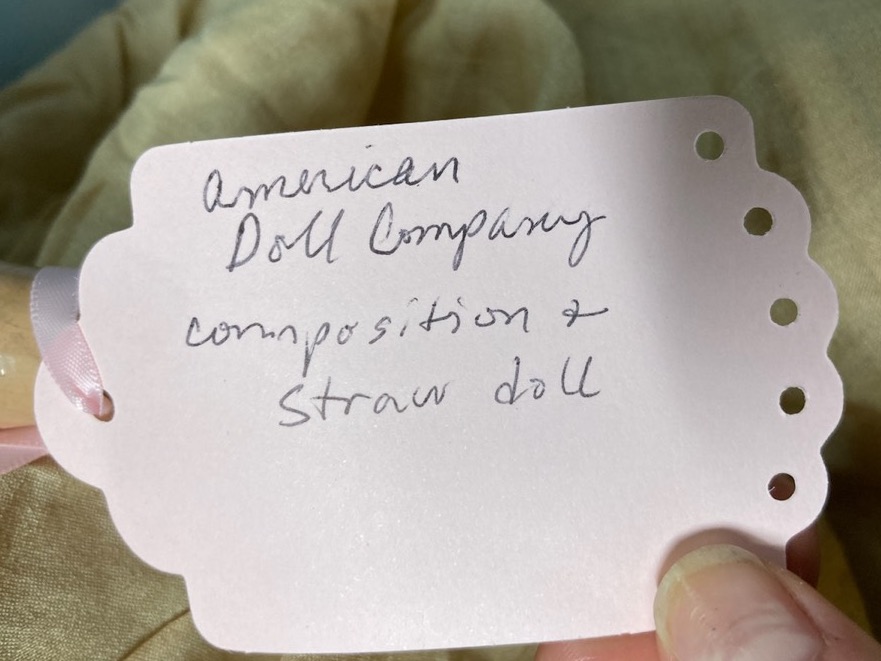 American
Doll Company
composition &
straw doll